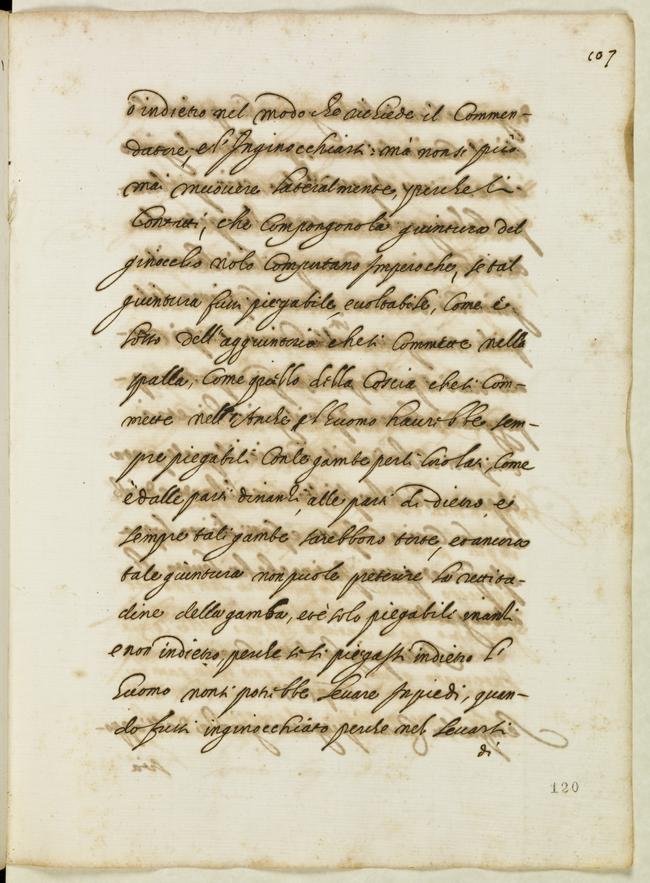 107
o indietro nel modo che richiede il Commen-
datore, e l'Inginocchiarsi: mà non si può
mai muovere lateralmente, perche li
Contatti, che compongono la giuntura del
ginocchio nolo Comportano Imperoche, se tal
giuntura fussi piegabile, e voltabile, Come è
lotto dell'aggiuntorio che si Commette nella
spalla, Come quello della Coscia che si Com-
mette nell'Anche, l'huomo haurebbe sem-
pre piegabili Con le gambe per li loro lati, Come
è dalle parti dinanzi, alle parti di dietro, e
sempre tali gambe sarebbono torte, et ancora
tale giuntura non puole preterire la rettitu-
dine della gamba, et è solo piegabili inanti
e non indietro, perche se si piegassi indietro l'
huomo non si potrebbe levare In piedi, quan-
do fussi inginocchiato perche nel levarsi
di
120